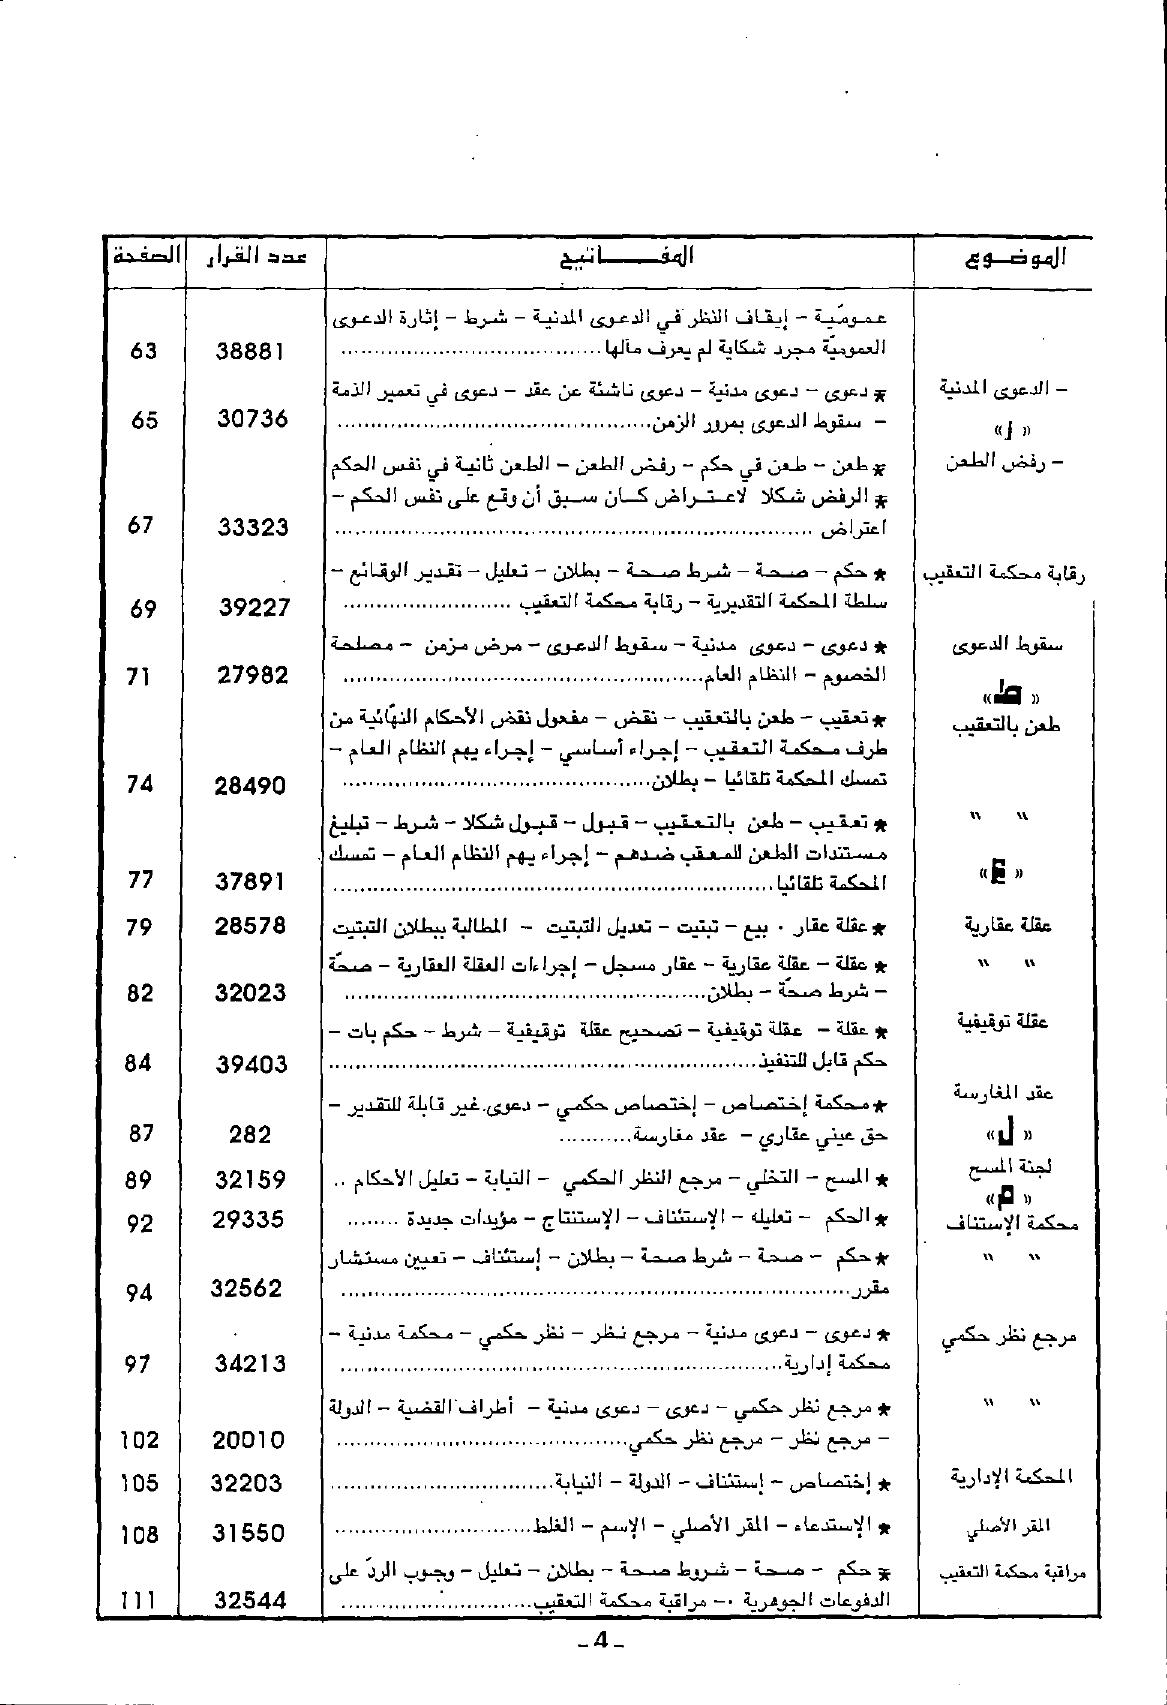 الموضوع المفـــاتيح عدد القرار الصفحة
عموميّة – إيقاف النظر في الدعوى المدنية – شرط – إثارة الدعوى
العموميّة مجرد شكاية لم يعرف مآلها ........ 38881 63
– الدعوى المدنية ★ دعوى – دعوى مدنية – دعوى ناشئة عن عقد – دعوى في تعمير الذمة
– سقوط الدعوى بمرور الزمن ........ 30736 65
« ر »
– رفض الطعن ★ طعن – طعن في حكم – رفض الطعن – الطعن ثانية في نفس الحكم
★ الرفض شكلا لاعتراض كان سبق أن وقع على نفس الحكم –
اعتراض ........ 33323 67
رقابة محكمة التعقيب ★ حكم – صحة – شرط صحة – بطلان – تعليل – تقدير الوقائع –
سلطة المحكمة التقديرية – رقابة محكمة التعقيب ........ 39227 69
سقوط الدعوى ★ دعوى – دعوى مدنية – سقوط الدعوى – مرض مزمن – مصلحة
الخصوم – النظام العام ........ 27982 71
« ط »
طعن بالتعقيب ★ تعقيب – طعن بالتعقيب – نقض – مفعول نقض الأحكام النهائية من
طرف محكمة التعقيب – إجراء أساسي – إجراء يهم النظام العام –
تمسك المحكمة تلقائيا – بطلان ........ 28490 74
" " ★ تعقيب – طعن بالتعقيب – قبول – قبول شكلا – شرط – تبليغ
مستندات الطعن للمعقب ضدهم – إجراء يهم النظام العام – تمسك
المحكمة تلقائيا ........ 37891 77
« ع »
عقلة عقارية ★ عقلة عقار . بيع – تبتيت – تعديل التبتيت – المطالبة ببطلان التبتيت 28578 79
" " ★ عقلة – عقلة عقارية – عقار مسجل – إجراءات العقلة العقارية – صحّة
– شرط صحّة – بطلان ........ 32023 82
عقلة توقيفية ★ عقلة – عقلة توقيفية – تصحيح عقلة توقيفية – شرط – حكم بات –
حكم قابل للتنفيذ ........ 39403 84
عقد المغارسة ★ محكمة إختصاص – إختصاص حكمي – دعوى غير قابلة للتقدير –
حق عيني عقاري – عقد مغارسة ........ 282 87
« ل »
لجنة المسح ★ المسح – التخلي – مرجع النظر الحكمي – النيابة – تعليل الأحكام .. 32159 89
« م »
محكمة الإستئناف ★ الحكم – تعليله – الإستئناف – الإستنتاج – مؤيدات جديدة ........ 29335 92
" " ★ حكم – صحة – شرط صحة – بطلان – إستئناف – تعيين مستشار
مقرر ........ 32562 94
مرجع نظر حكمي ★ دعوى – دعوى مدنية – مرجع نظر – نظر حكمي – محكمة مدنية –
محكمة إدارية ........ 34213 97
" " ★ مرجع نظر حكمي – دعوى – دعوى مدنية – أطراف القضية – الدولة
– مرجع نظر – مرجع نظر حكمي ........ 20010 102
المحكمة الإدارية ★ إختصاص – إستئناف – الدولة – النيابة ........ 32203 105
المقر الأصلي ★ الإستدعاء – المقر الأصلي – الإسم – الغلط ........ 31550 108
مراقبة محكمة التعقيب ★ حكم – صحة – شروط صحة – بطلان – تعليل – وجوب الردّ على
الدفوعات الجوهرية – مراقبة محكمة التعقيب ........ 32544 111
– 4 –